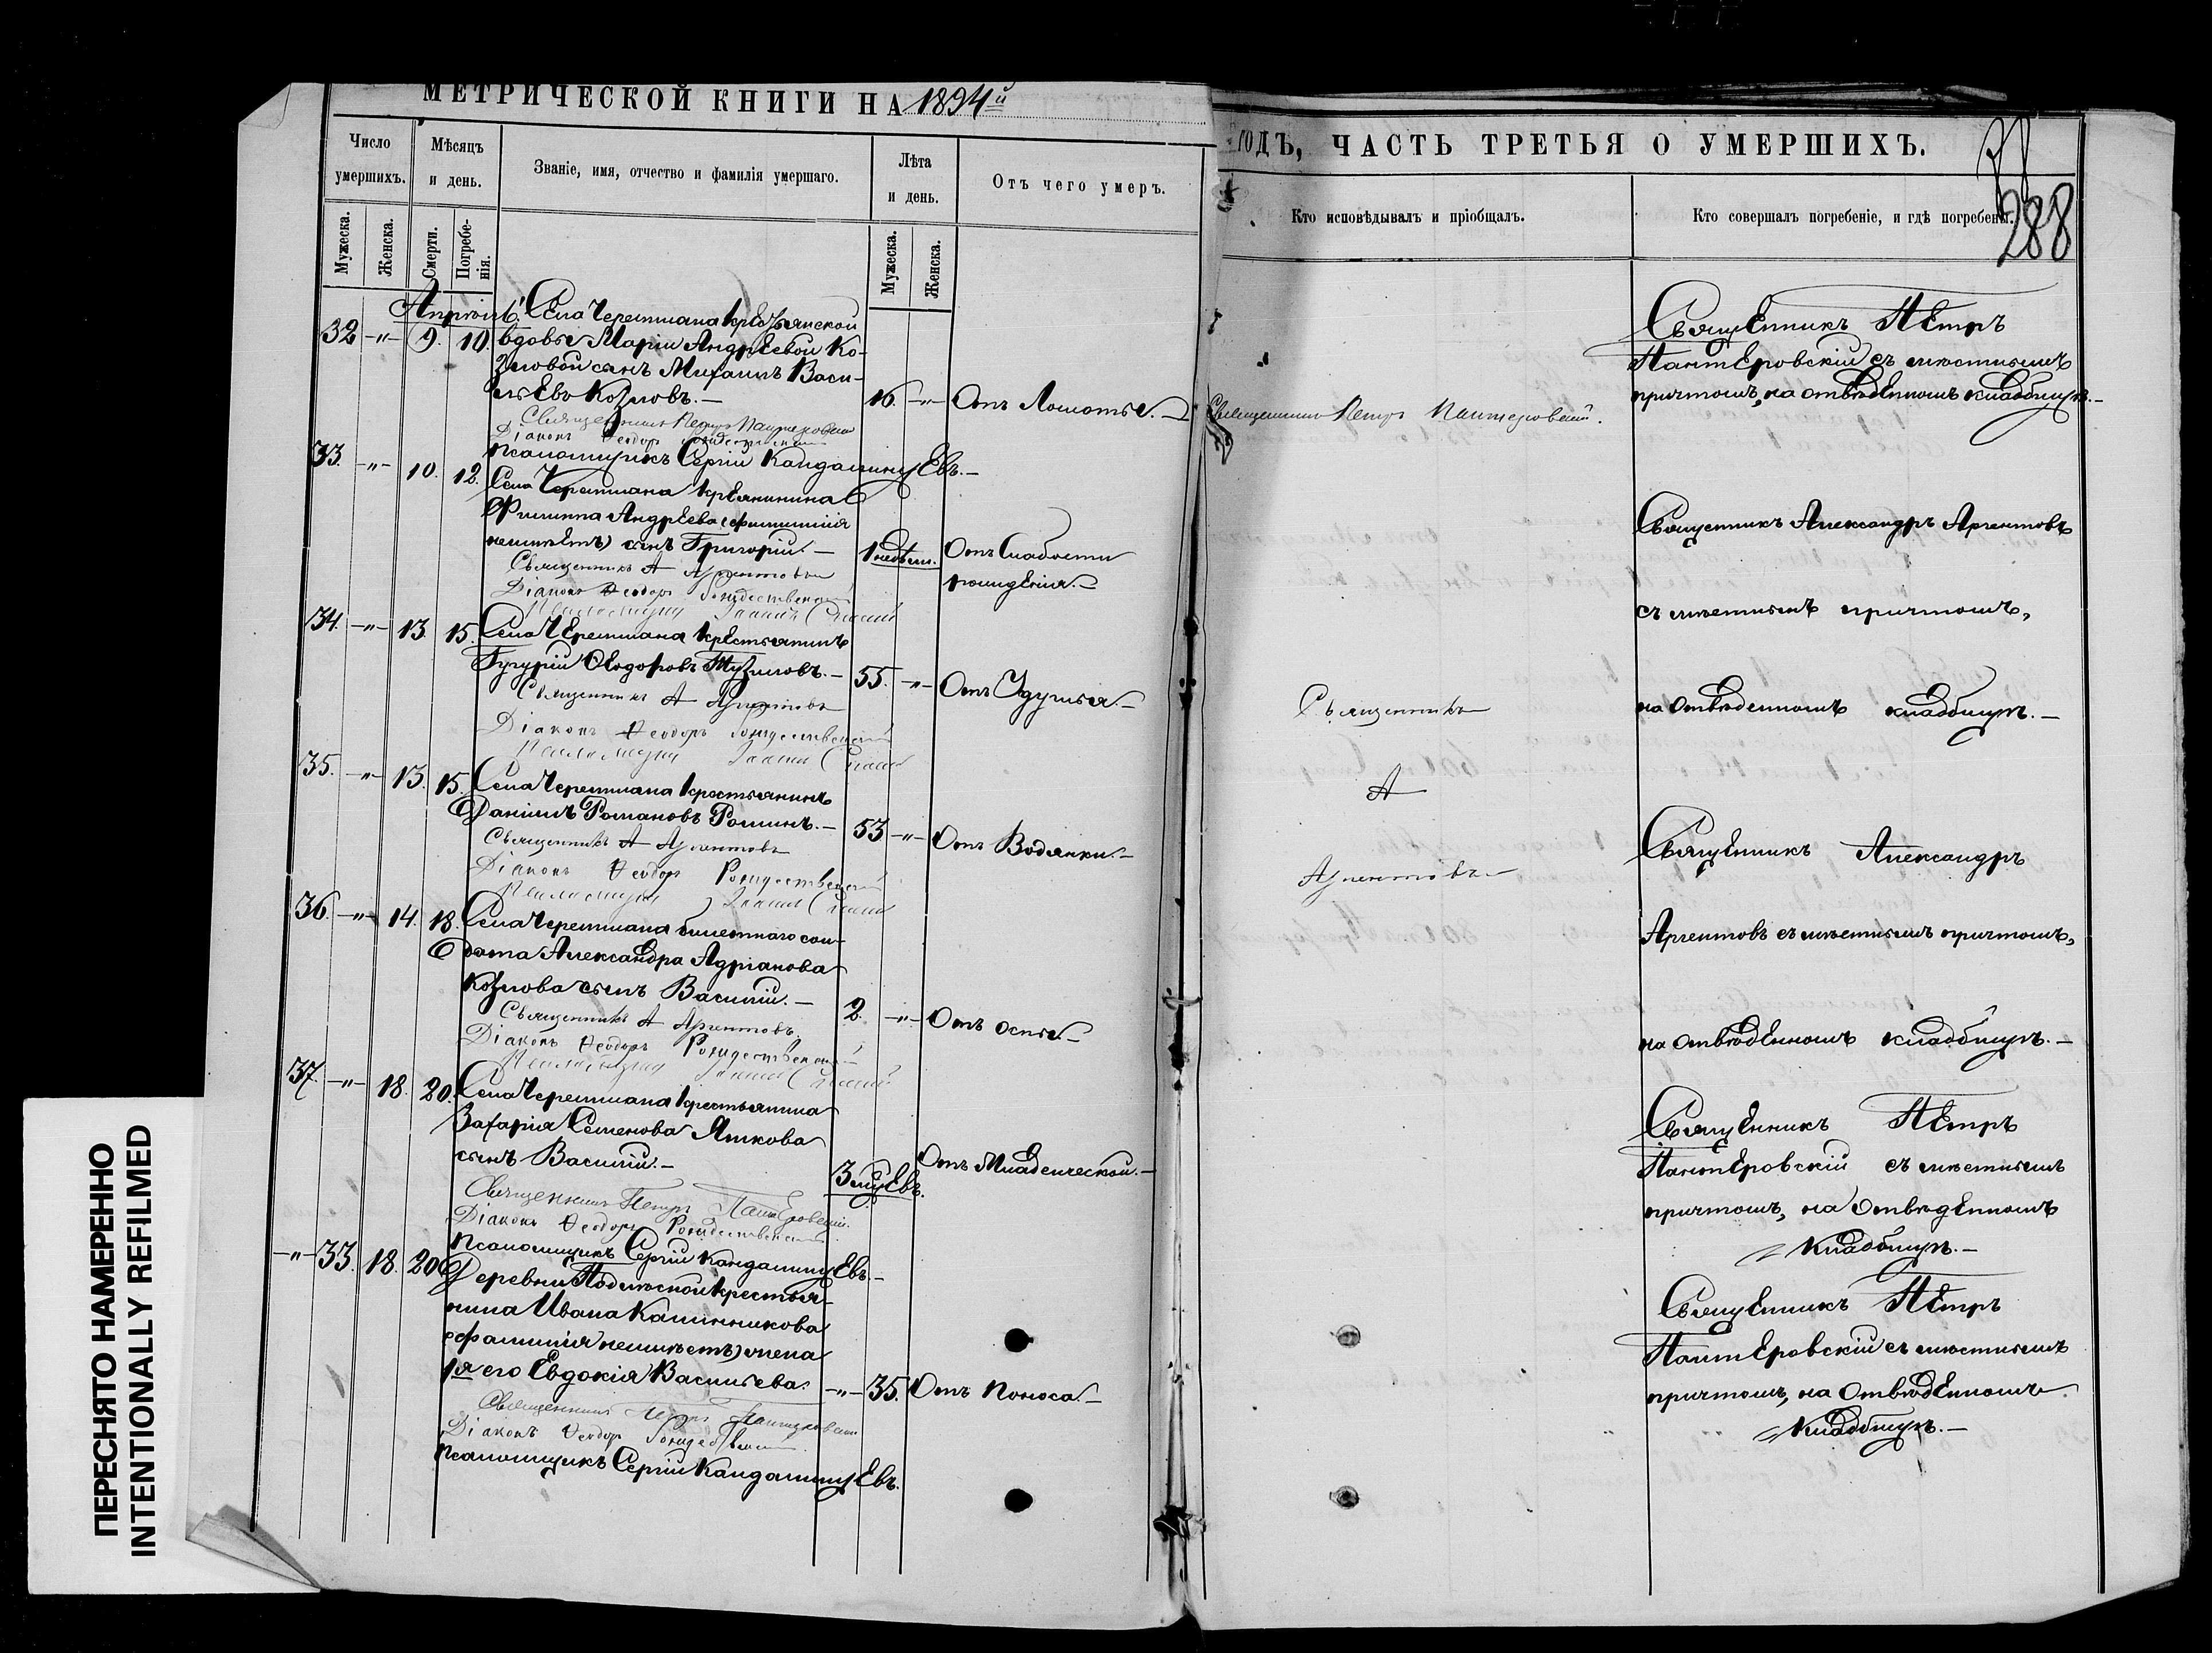 МЕТРИЧЕСКОЙ КНИГИ НА 1894й
ГОДЪ, ЧАСТЬ ТРЕТЬЯ О УМЕРШИХЪ.
288
Число умершихъ.
Мѣсяцъ и день.
Званіе, имя, отчество и фамилія умершаго.
Лѣта и день.
Отъ чего умеръ.
Кто исповѣдывалъ и пріобщалъ.
Кто совершалъ погребеніе, и гдѣ погребены.
Мужеска.
Женска.
Смерти.
Погребенія.
Мужеска.
Женска.
Апрѣль.
32 -"- 9. 10.
Села Черемшана крестьянской
вдовы Маріи Андреевой Ко-
зловой сынъ Михаилъ Васи-
льевъ Козловъ.-
16. -"- Отъ Ломоты.-
Священникъ Петръ Пантеровскій.
Священникъ Петръ
Пантеровскій съ мѣстнымъ
причтомъ, на отведенномъ кладбищѣ.-
Священникъ Петръ Пантеровскій
Діаконъ Ѳеодоръ Рождественскій
Псаломщикъ Сергій Кандалинцевъ.-
33. -"- 10. 12.
Села Черемшана крестьянина
Филиппа Андреева (фамиліи
не имѣетъ) сынъ Григорій.-
1 недѣли.
Отъ Слабости
рожденія.-
Священникъ Александръ Аргентовъ
съ мѣстнымъ причтомъ,
на отведенномъ кладбищѣ.-
Священникъ А Аргентовъ
Діаконъ Ѳеодоръ Рождественскій
Псаломщикъ Іоаннъ
34. -"- 13. 15.
Села Черемшана крестьянинъ
Гурій Ѳеодоровъ Тузиловъ.-
55. -"- Отъ Удушья.-
Священникъ
А
Аргентовъ
Священникъ А Аргентовъ
Діаконъ Ѳеодоръ Рождественскій
Псаломщикъ Іоаннъ
35. -"- 13. 15.
Села Черемшана крестьянинъ
Даніилъ Романовъ Роминъ.-
53 -"- Отъ Водянки.-
Священникъ Александръ
Аргентовъ съ мѣстнымъ причтомъ,
на отведенномъ кладбищѣ.-
Священникъ А Аргентовъ
Діаконъ Ѳеодоръ Рождественскій
Псаломщикъ Іоаннъ
36. -"- 14. 18.
Села Черемшана билетнаго сол-
дата Александра Адріанова
Козлова сынъ Василій.-
2. -"- Отъ оспы.-
Священникъ А Аргентовъ.
Діаконъ Ѳеодоръ Рождественскій
Псаломщикъ Іоаннъ
37. -"- 18. 20.
Села Черемшана крестьянина
Захарія Семенова Яшкова
сынъ Василій.-
3 мѣсцевъ.
Отъ Младенческой.-
Священникъ Петръ
Пантеровскій съ мѣстнымъ
причтомъ, на отведенномъ
кладбищѣ.-
Священникъ Петръ Пантеровскій.
Діаконъ Ѳеодоръ Рождественскій
Псаломщикъ Сергій Кандалинцевъ.-
-"- 33. 18. 20.
Деревни Подлѣсной крестья-
нина Ивана Калинникова
(фамиліи не имѣетъ) жена
1я его Евдокія Васильева.
-"- 35. Отъ поноса.-
Священникъ Петръ
Пантеровскій съ мѣстнымъ
причтомъ, на отведенномъ
кладбищѣ.-
Священникъ Петръ Пантеровскій
Діаконъ Ѳеодоръ Рождественскій
Псаломщикъ Сергій Кандалинцевъ.
ПЕРЕСНЯТО НАМЕРЕННО
INTENTIONALLY REFILMED